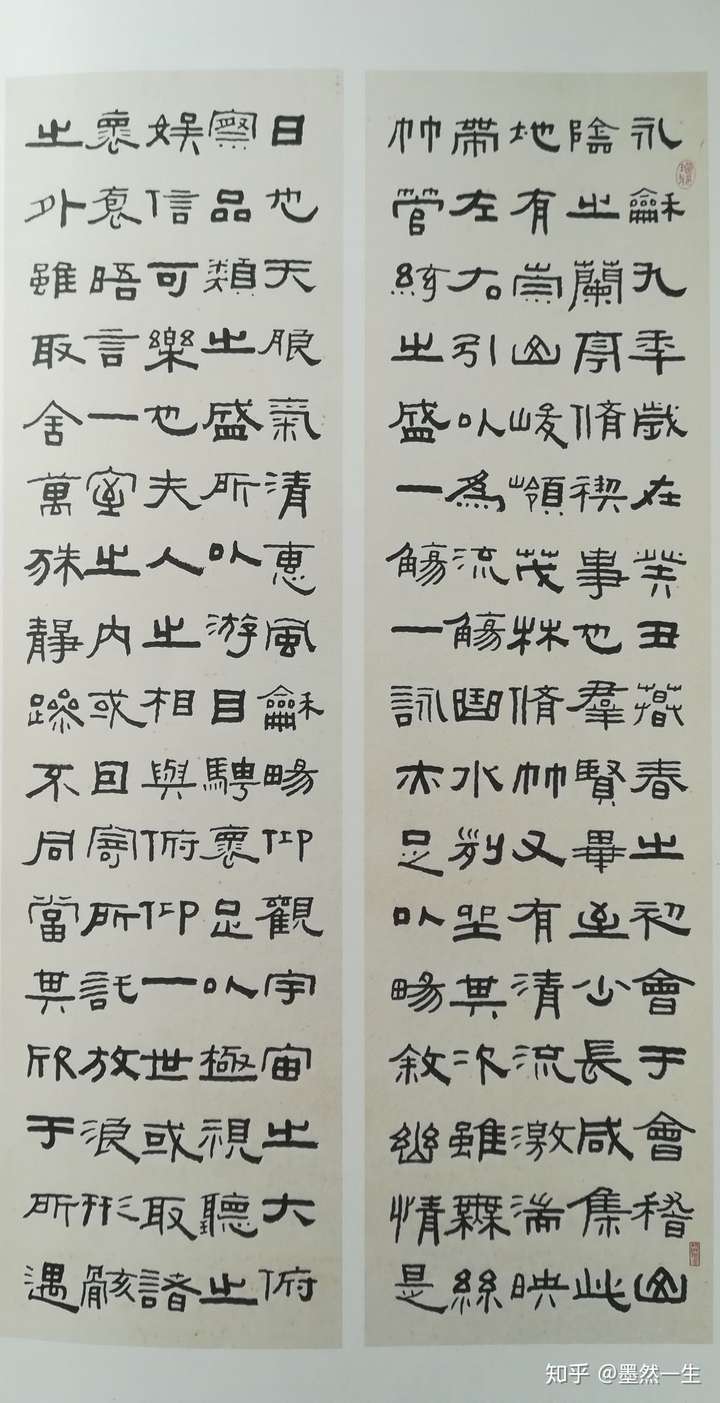 永龢九年歲在癸丑暮春之初會于會稽山
陰之蘭亭脩禊事也羣賢畢至少長咸集此
地有崇山峻嶺茂林脩竹又有清流激湍映
帶左右引以為流觴曲水列坐其次雖無絲
竹管絃之盛一觴一詠亦足以暢敘幽情是
日也天朗氣清惠風龢暢仰觀宇宙之大俯
察品類之盛所以游目騁懷足以極視聽之
娛信可樂也夫人之相與俯仰一世或取諸
懷袌晤言一室之內或因寄所託放浪形骸
之外雖取舍萬殊靜躁不同當其欣于所遇
知乎 @墨然一生